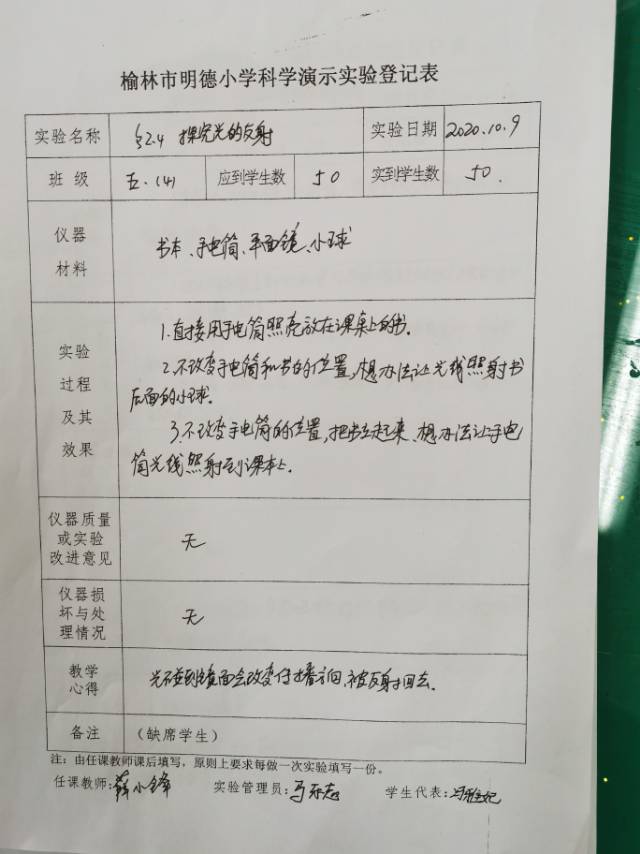 榆林市明德小学科学演示实验登记表
实验名称 §2.4 探究光的反射 实验日期 2020.10.9
班 级 五.(4) 应到学生数 50 实到学生数 50.
仪器
材料
书本、手电筒、平面镜、小球
实验
过程
及其
效果
1.直接用手电筒照亮放在课桌上的书.
2.不改变手电筒和书的位置,想办法让光线照射书
后面的小球.
3.不改变手电筒的位置,把书立起来、想办法让手电
筒光线照射到课本上.
仪器质量
或实验
改进意见
无
仪器损
坏与处
理情况
无
教学
心得
光碰到镜面会改变传播方向,被反射回去.
备注 (缺席学生)
注:由任课教师课后填写,原则上要求每做一次实验填写一份。
任课教师:薛小锋 实验管理员: 学生代表: